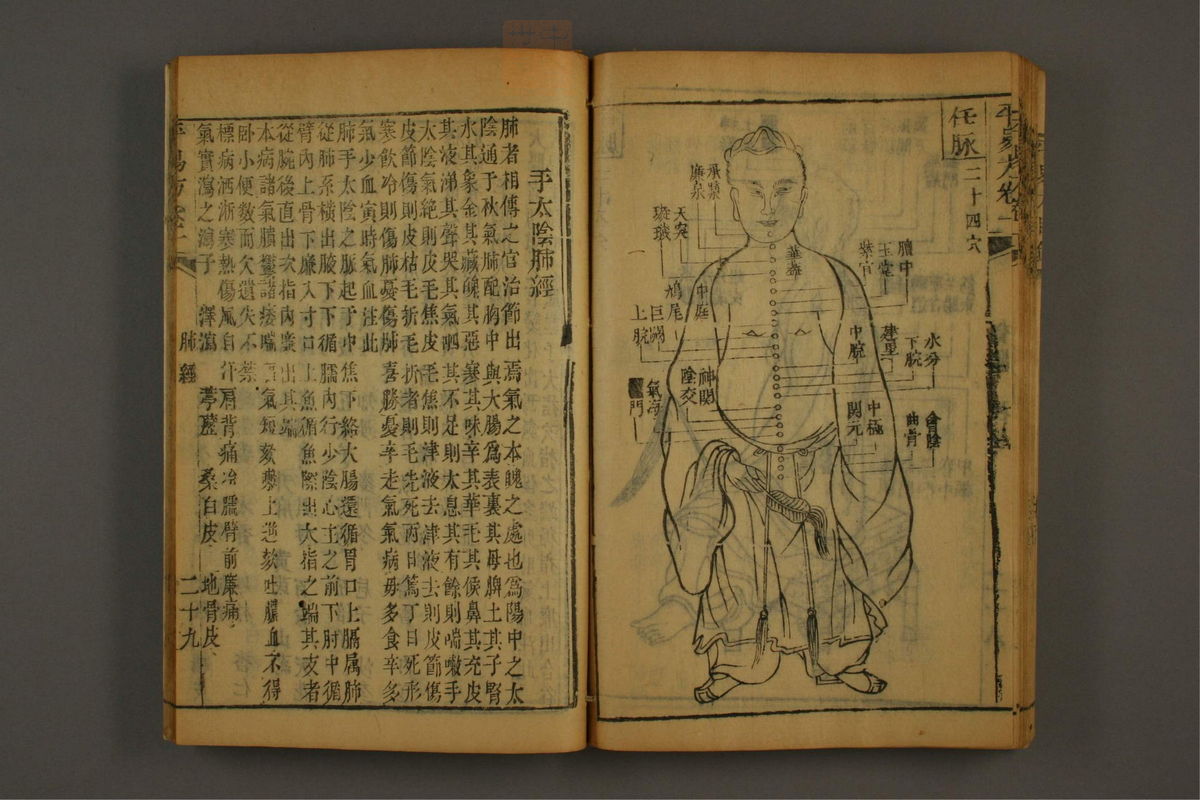 任脉二十四穴
承漿
廉泉
天突
璇璣
華蓋
膻中
玉堂
紫宮
中庭
鳩尾
巨闕
上脘
水分
下脘
建里
中脘
神闕
陰交
氣海
門
會陰
曲骨
中極
関元
手太陰肺經
肺者相傅之官治節出焉氣之本魄之處也爲陽中之太
陰通于秋氣肺配胸中與大腸爲表裏其母脾土其子腎
水其象金其藏魄其惡寒其味辛其華毛其候鼻其充皮
其液涕其聲哭其氣呬其不足則太息其有餘則喘嗽手
太陰氣絶則皮毛焦皮毛焦則津液去津液去則皮節傷
皮節傷則皮枯毛折毛折者則毛先死丙日篤丁日死形
寒飲冷則傷肺憂傷肺喜勝憂辛走氣氣病毋多食辛多
氣少血寅時氣血注此
肺手太陰之脉起于中焦下絡大腸還循胃口上膈属肺
從肺系横出腋下下循臑内行少陰心主之前下肘中循
臂内上骨下廉入寸口上魚循魚際出大指之端其支者
從腕後直出次指内廉出其端
本病諸氣膹鬱諸痿喘氣短欬嗽上逆欬吐膿血不得
卧小便數而欠遺失不禁
標病洒淅寒熱傷風自汗肩背痛冷臑臂前廉痛
氣實瀉之瀉子 澤瀉 葶藶 桑白皮 地骨皮
肺經
二十九